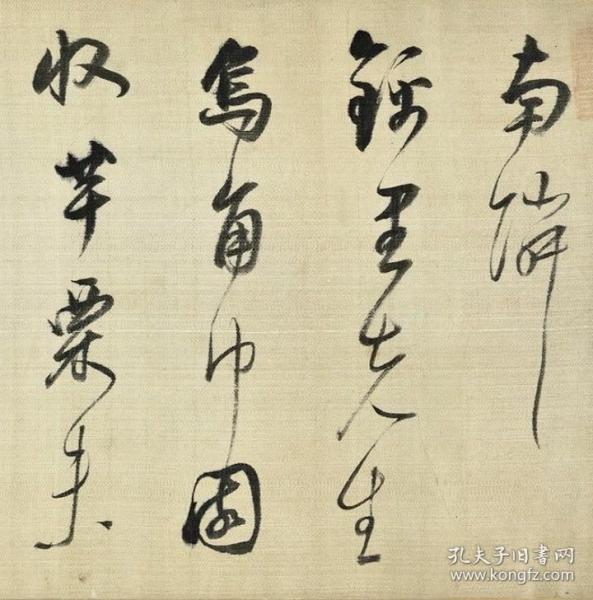 南隣
錦里先生
烏角巾園
收芋栗未
孔夫子旧書网
www.kongfz.com